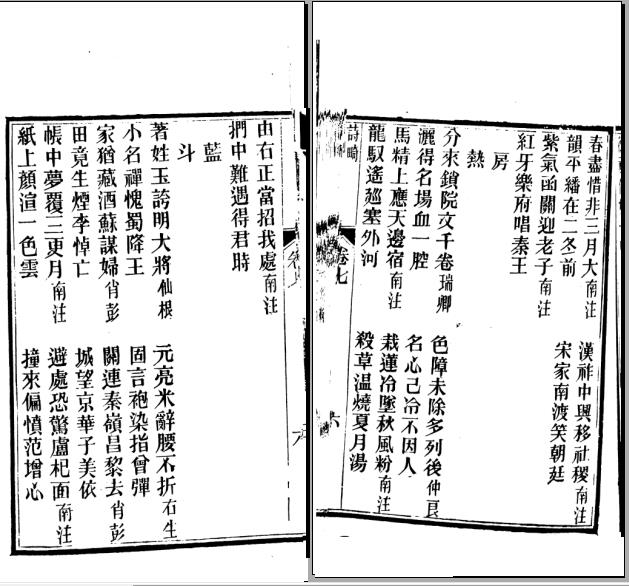 春盡惜非三月大南注
漢祚中興移社稷南注
韻平繙在二冬前
宋家南渡笑朝廷
紫氣函關迎老子南注
紅牙樂府唱秦王
房
熱
分來鎖院文千卷瑞卿
色障未除多列後仲良
灑得名場血一腔
名心已冷不因人
馬精上應天邊宿南注
栽蓮冷墜秋風粉南注
龍馭遙廵塞外河
殺草温燒夏月湯
詩畸
卷七
六
由右正當招我處南注
捫中難遇得君時
藍
斗
著姓玉誇明大將仙根
元亮米辭腰不折右生
小名禪愧蜀降王
固言袍染指曾彈
家猶藏酒蘇謀婦肖彭
關連秦嶺昌黎去肖彭
田竟生煙李悼亡
城望京華子美依
帳中夢覆三更月南注
避處恐驚盧杞面南注
紙上顏渲一色雲
撞來偏憤范增心